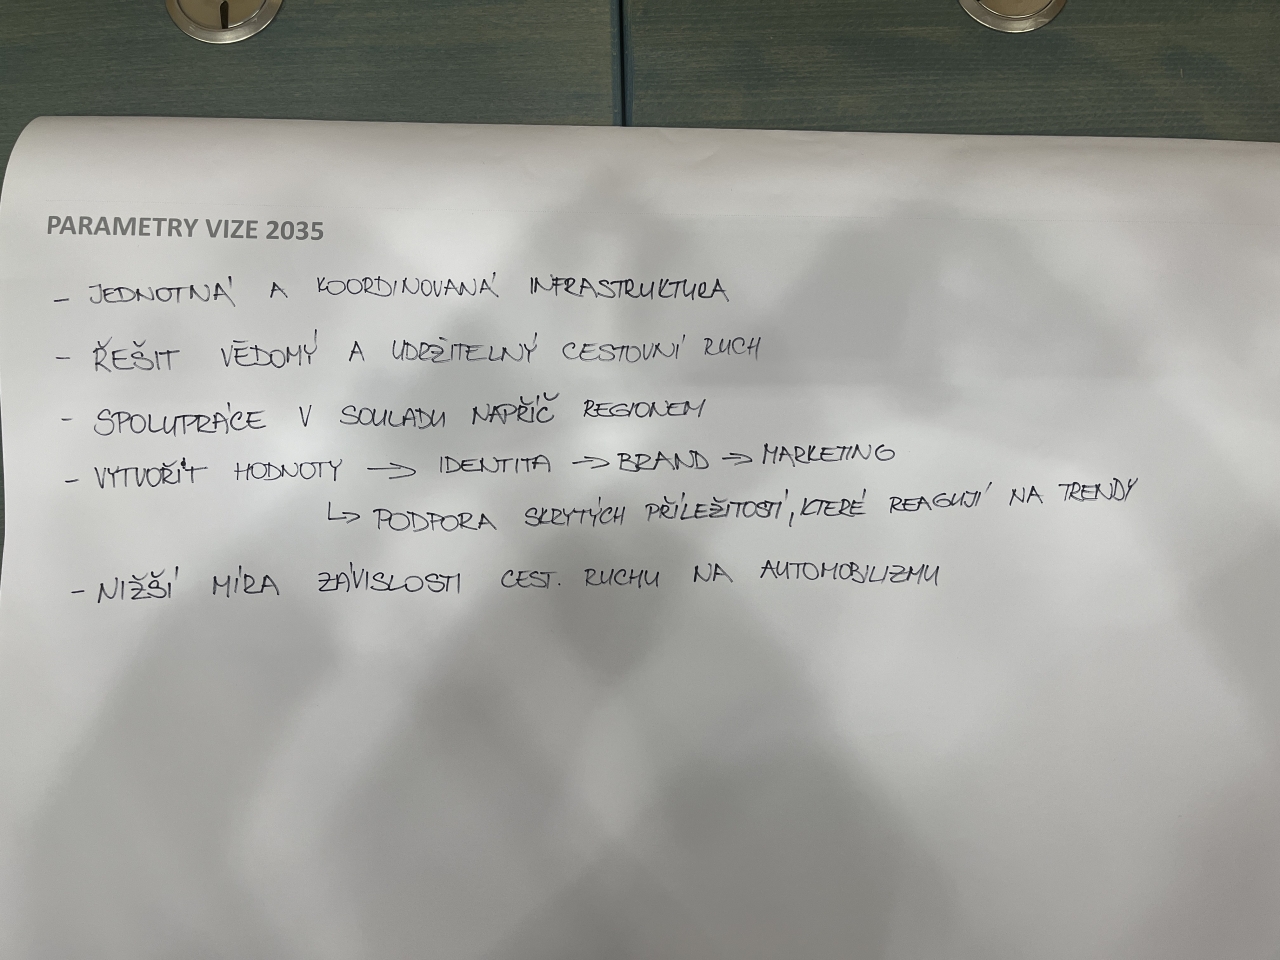 PARAMETRY VIZE 2035
- JEDNOTNÁ A KOORDINOVANÁ INFRASTRUKTURA
- ŘEŠIT VĚDOMÝ A UDRŽITELNÝ CESTOVNÍ RUCH
- SPOLUPRÁCE V SOULADU NAPŘÍČ REGIONEM
- VYTVOŘIT HODNOTY → IDENTITA → BRAND → MARKETING
↳ PODPORA SKRYTÝCH PŘÍLEŽITOSTÍ, KTERÉ REAGUJÍ NA TRENDY
- NIŽŠÍ MÍRA ZÁVISLOSTI CEST. RUCHU NA AUTOMOBILIZMU